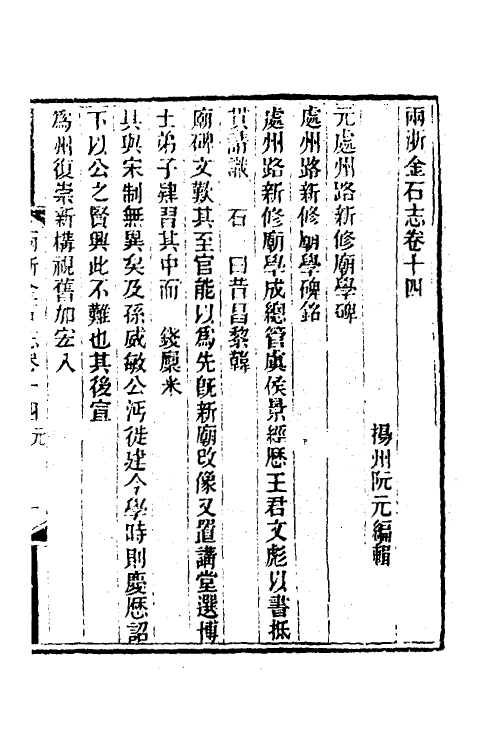 兩浙金石志卷十四
揚州阮元編輯
元處州路新修廟學碑
處州路新修廟學碑銘
處州路新修廟學成總管虞侯景經歷王君文彪以書抵
貫請識 石 曰昔昌黎韓
廟碑文歎其至官能以爲先旣新廟改像又置講堂選博
士弟子肄習其中而 錢廩米
具與宋制無異矣及孫威敏公沔徙建今學時則慶歷詔
下以公之賢興此不難也其後宣
爲州復崇新構視舊加宏入
兩浙金石志卷十四 元 一